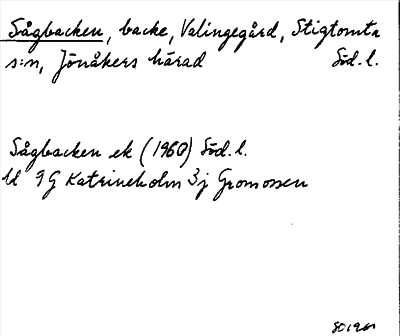 Sågbacken, backe, Valingegård, Stigtomta
s:n, Jönåkers härad Söd. l.
Sågbacken ek (1960) Söd. l.
bl 9G Katrineholm 3j Gromossen